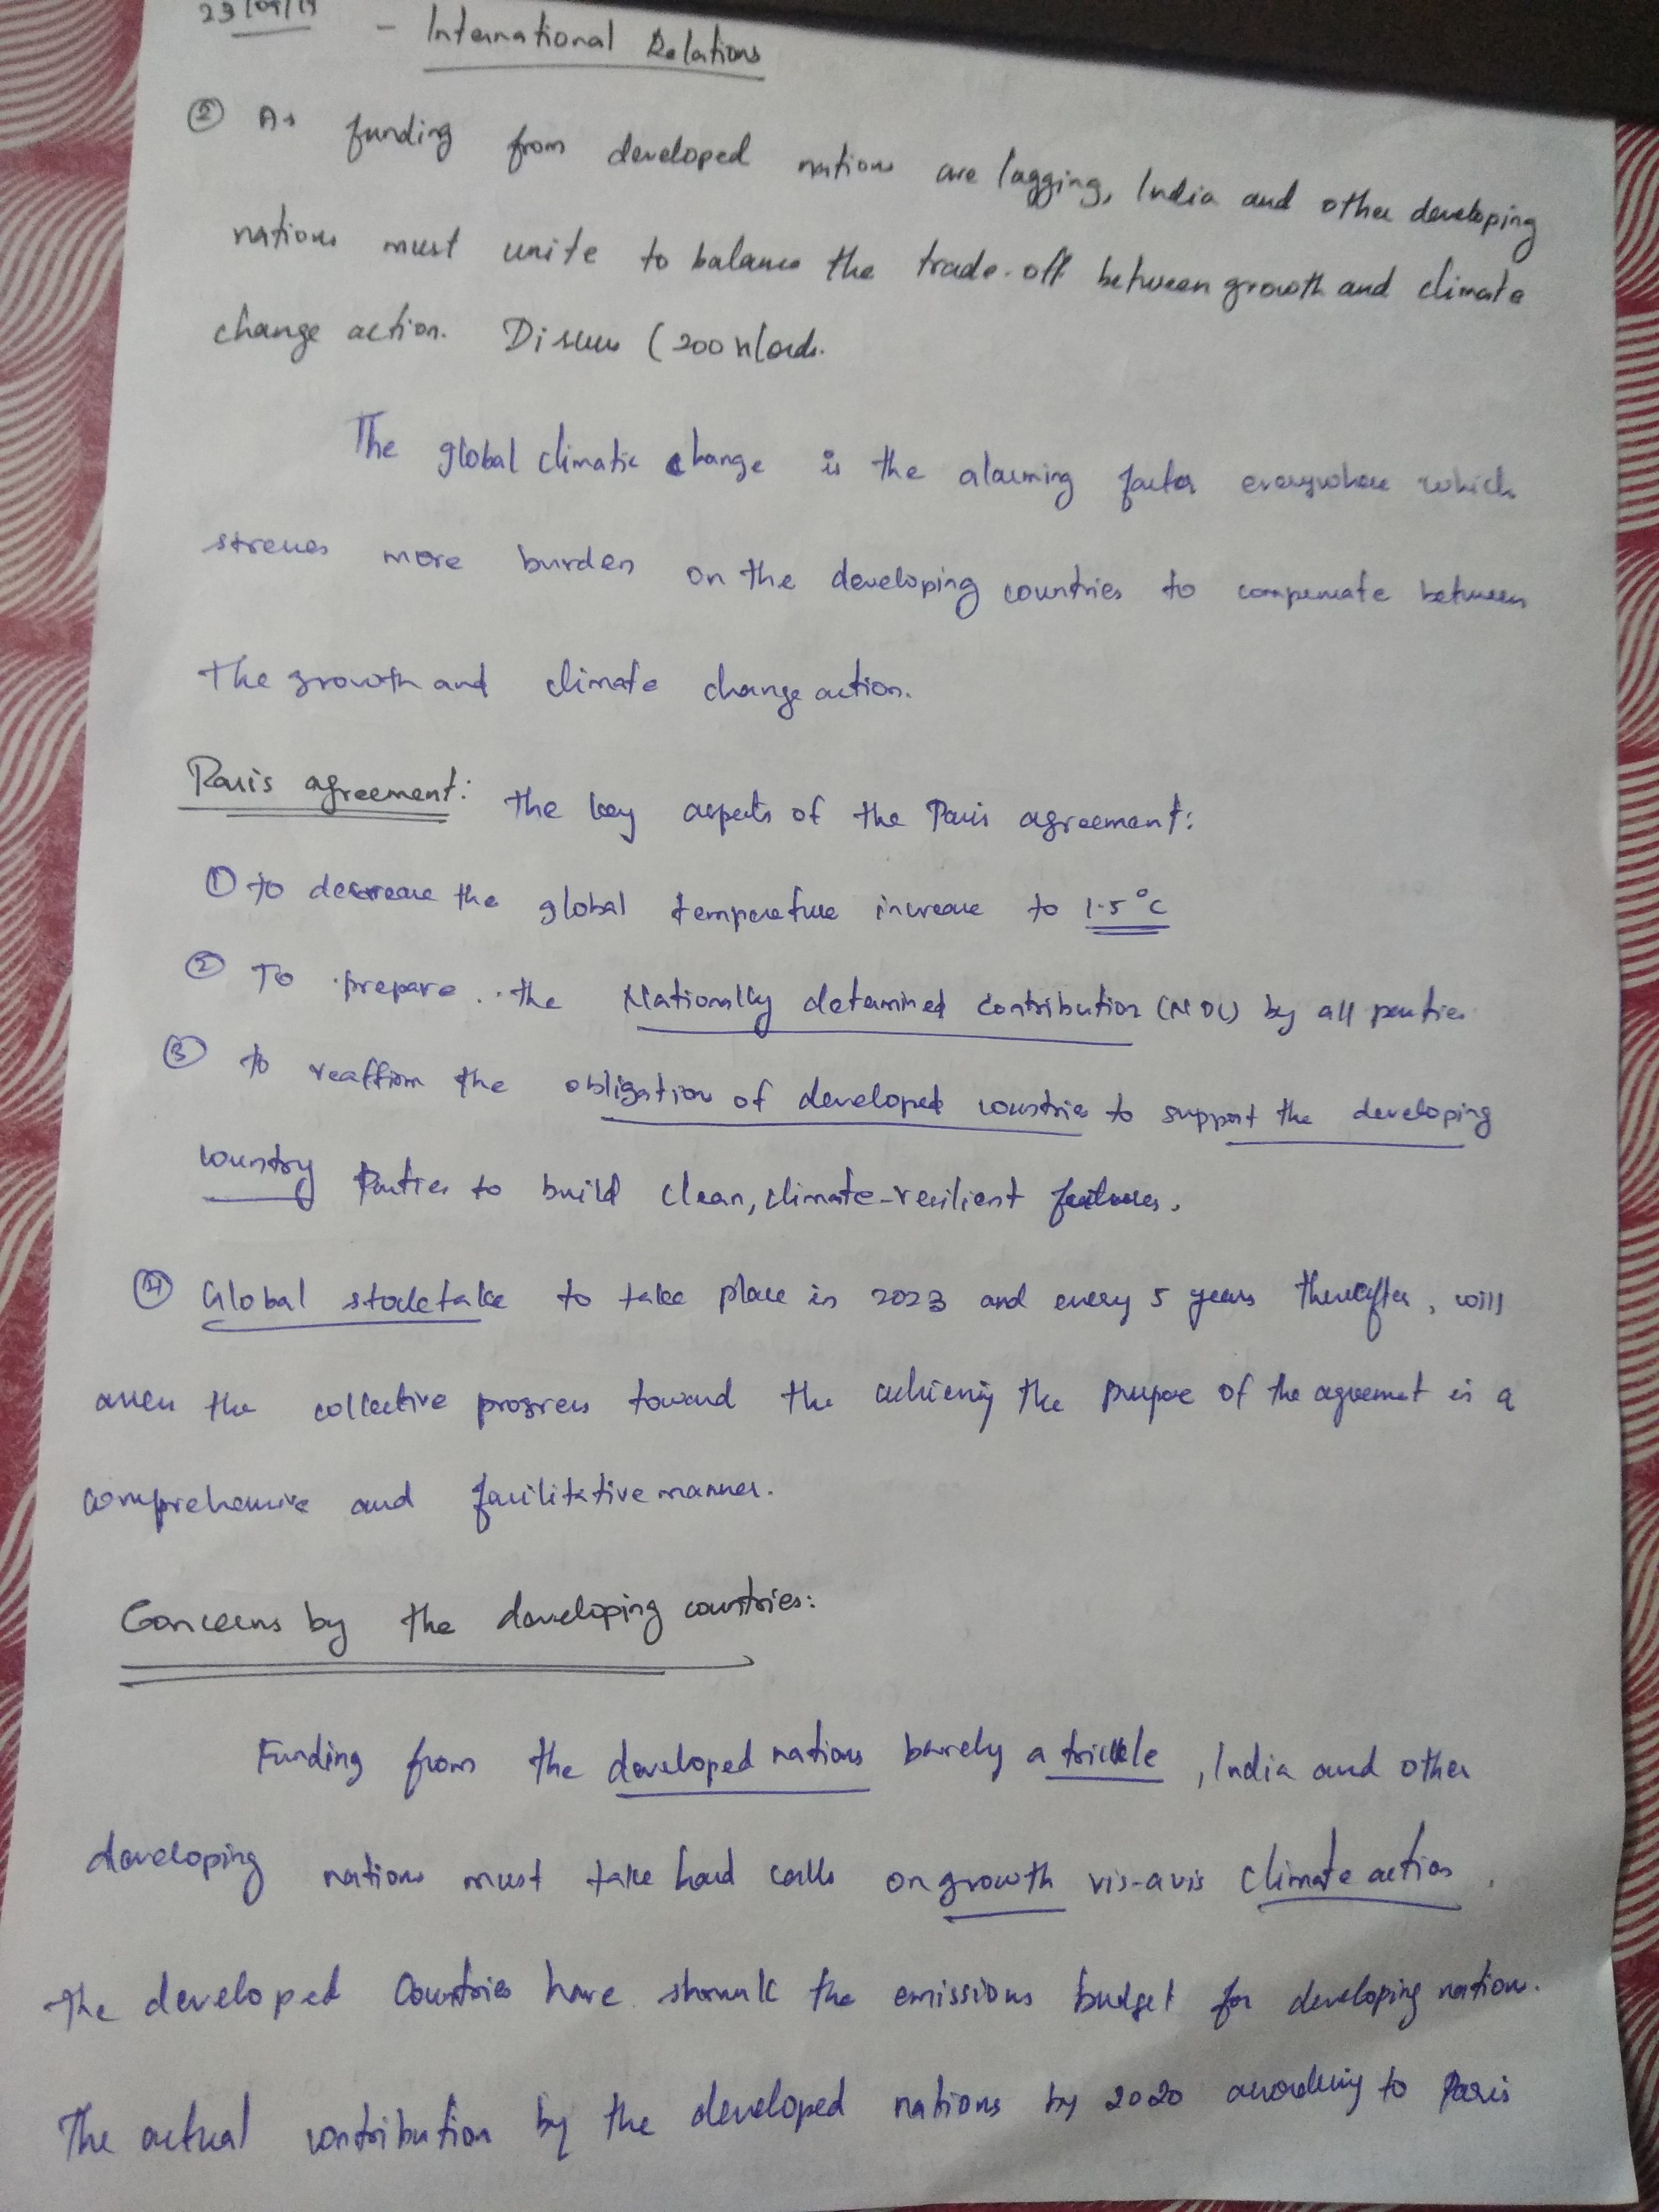 23/09/19 - International Relations
② As funding from developed nations are lagging, India and other developing
nations must unite to balance the trade-off between growth and climate
change action. Discuss (200 Words.
The global climatic change is the alarming factor everywhere which
stresses more burden on the developing countries to compensate between
the growth and climate change action.
Paris agreement: The key aspects of the Paris agreement:
① to decrease the global temperature increase to 1.5°C
② To prepare the Nationally determined contribution (NDC) by all parties
③ to reaffirm the obligation of developed countries to support the developing
country Parties to build clean, climate-resilient futures.
④ Global stocktake to take place in 2023 and every 5 years thereafter, will
assess the collective progress toward the achieving the purpose of the agreement in a
comprehensive and facilitative manner.
Concerns by the developing countries:
Funding from the developed nations barely a trickle, India and other
developing nations must take hard calls on growth vis-avis climate action.
The developed Countries have shrunk the emissions budget for developing nations.
The actual contribution by the developed nations by 2020 according to Paris